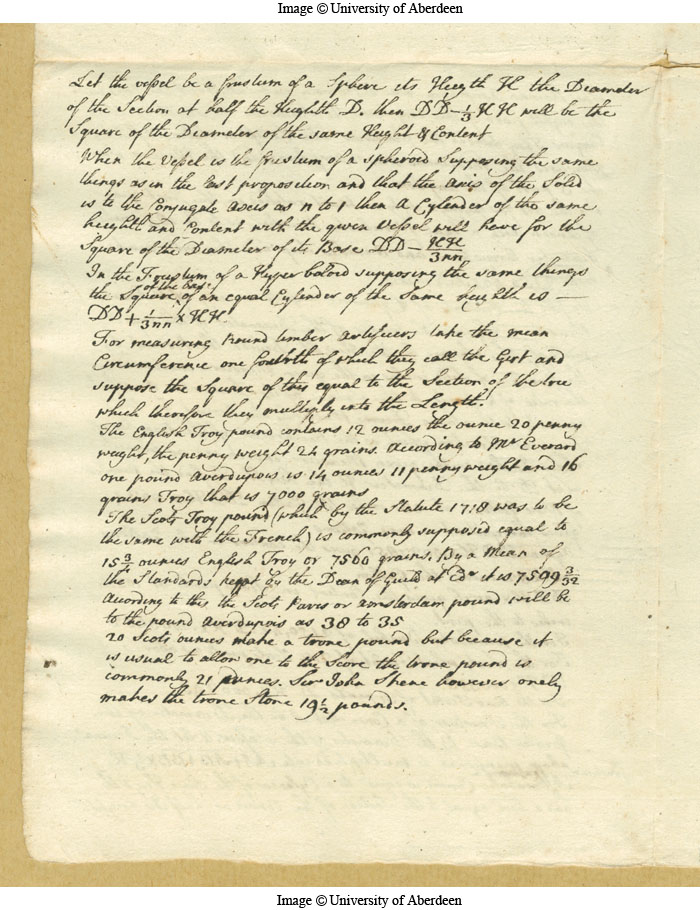 Image © University of Aberdeen
Let the vessel be a frustum of a Sphere its Heigth H the Diameter
of the Section at half the Heighth D. then DD - 1/3 HH will be the
Square of the Diameter of the same Height & Content
When the Vessel is the frustum of a spheroid Supposing the same
things as in the last proposition and that the axis of the Solid
is to the Conjugate Axis as n to 1 then A Cylender of the same
heighth and Content with the given Vessel will have for the
Square of the Diameter of its Base DD - HH/3nn
In the Frustum of a Hyper baloid supposing the same things
of the base
the Square ^ of an equal Cylender of the Same heighth is —
DD + 1/3nn × HH.
For measuring round timber artificers take the mean
Circumference one fourth of which they call the Girt and
suppose the Square of this equal to the Section of the tree
which therefore they multiply into the Length.
The English Troy pound contains 12 ounces the ounce 20 penny
weight, the penny weight 24 grains. According to Mr Everard
one pound Averdupois is 14 ounces 11 penny weight and 16
grains Troy that is 7000 grains
The Scots Troy pound (which by the Statute 1718 was to be
the same with the French) is commonly supposed equal to
15 3/4 ounces English Troy or 7560 grains. By a Mean of
the Standards kept by the Dean of Guild at Edr it is 7599 3/32
According to this the Scots Paris or Amsterdam pound will be
to the pound Averdupois as 38 to 35
20 Scots ounces make a trone pound but because it
is usual to allow one to the Score the trone pound is
commonly 21 ounces. Sir John Skene however onely
makes the trone Stone 19 1/2 pounds.
Image © University of Aberdeen